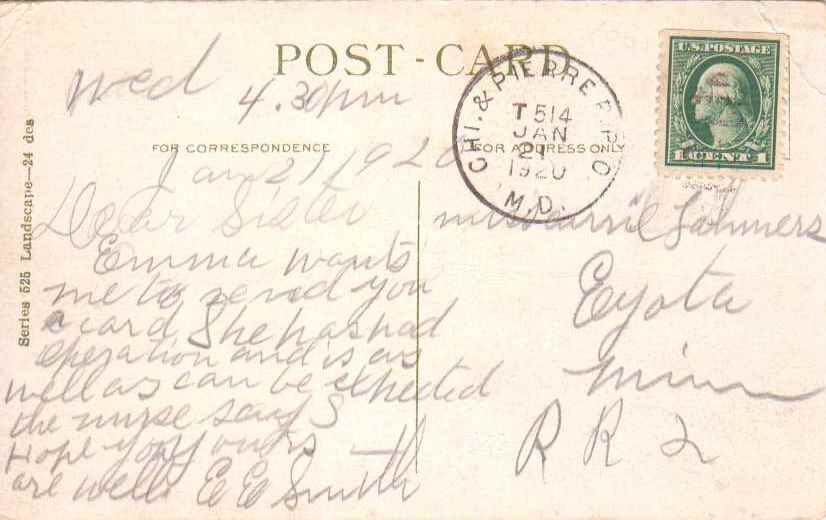 POST-CARD
Wed
4.30 pm
FOR CORRESPONDENCE
FOR ADDRESS ONLY
Jan 21 1920
Dear Sister
Emma wants
me to send you
a card She has had
operation and is as
well as can be expected
the nurse says
Hope you yours
are well. E E Smith
Series 525 Landscape—24 des
CHI. & PIERRE R.P.O.
T 514
JAN
21
1920
M.D.
U.S. POSTAGE
1 CENT 1
Miss Carrie Lahmers
Eyota
Minn
R R 2